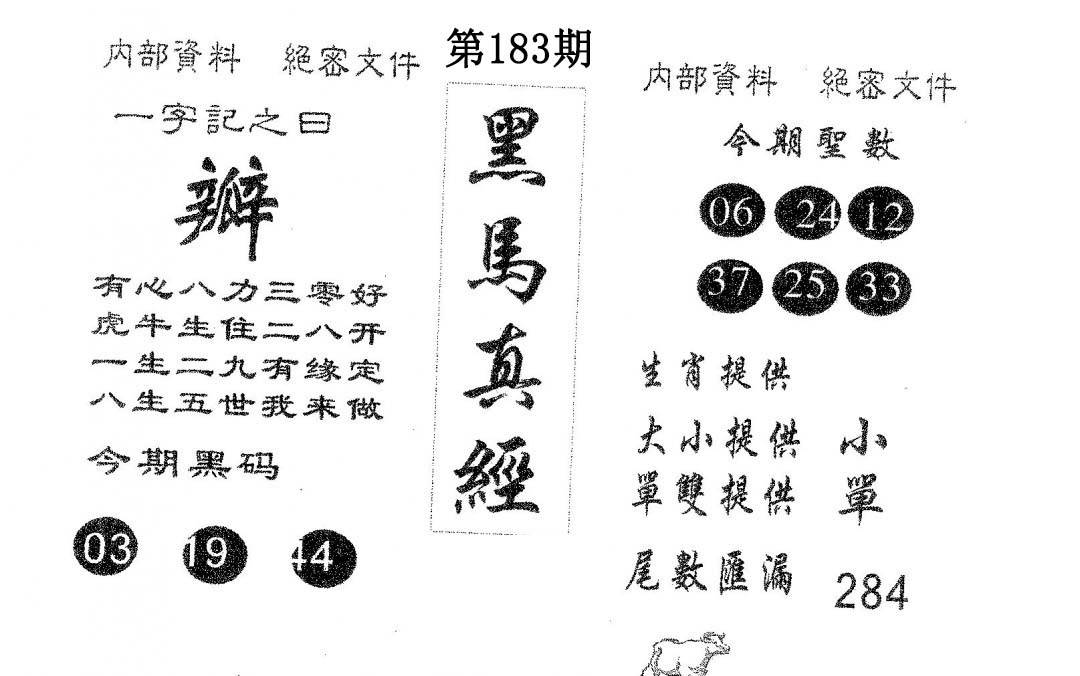 第183期
内部資料 絕密文件
一字記之曰
瓣
有心八力三零好
虎牛生住二八开
一生二九有缘定
八生五世我来做
今期黑码
03 19 44
黑馬真經
内部資料 絕密文件
今期聖數
06 24 12
37 25 33
生肖提供
大小提供 小
單雙提供 單
尾數匯漏 284